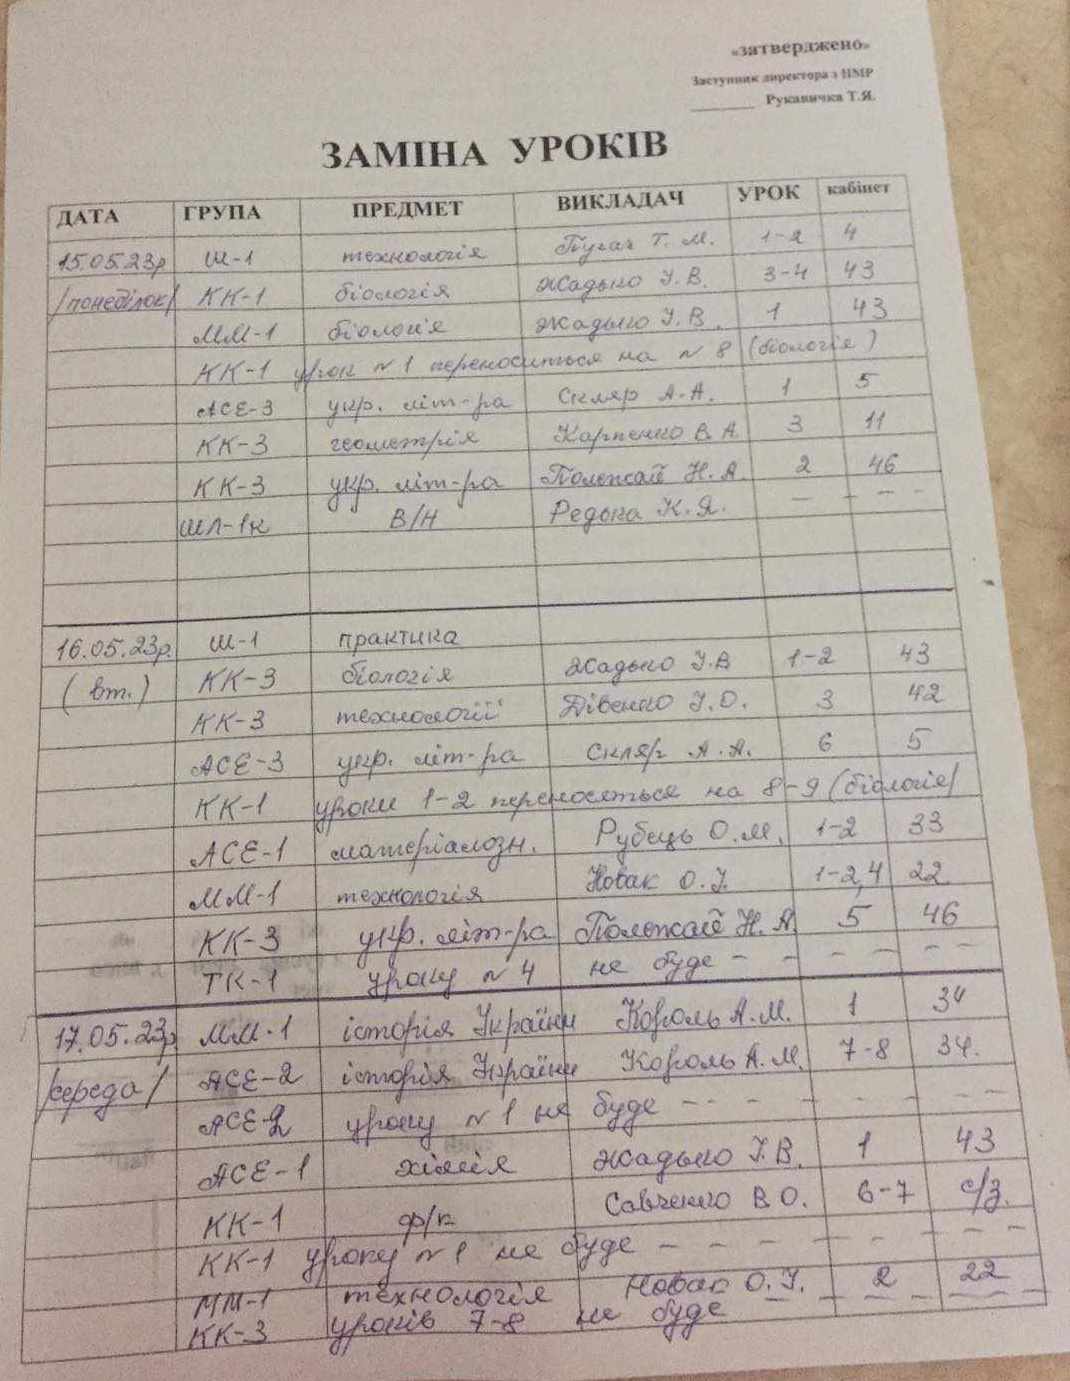 «затверджено»
Заступник директора з НМР
________ Рукавичка Т.Я.
ЗАМІНА УРОКІВ
ДАТА ГРУПА ПРЕДМЕТ ВИКЛАДАЧ УРОК кабінет
15.05.23р Ш-1 технологія Пугач Т. М. 1-2 4
/понеділок/ КК-1 біологія Жадько І.В. 3-4 43
ММ-1 біологія Жадько І.В. 1 43
КК-1 урок №1 переноситься на №8 (біологія)
АСЕ-3 укр. літ-ра Скляр А.А. 1 5
КК-3 геометрія Карпенко В.А 3 11
КК-3 укр. літ-ра Полежай Н.А. 2 46
ШЛ-1к В/Н Редька К.Я. — — — —
16.05.23р. Ш-1 практика
(вт.) КК-3 біологія Жадько І.В 1-2 43
КК-3 технології Дівенко І.О. 3 42
АСЕ-3 укр. літ-ра Скляр А.А. 6 5
КК-1 уроки 1-2 переносяться на 8-9 (біологія)
АСЕ-1 матеріалозн. Рубець О.М. 1-2 33
ММ-1 технологія Новак О.І. 1-2,4 22
КК-3 укр. літ-ра Полежай Н.А. 5 46
ТК-1 уроку №4 не буде — — — — — —
17.05.23р ММ-1 історія України Король А.М. 1 34
/середа/ АСЕ-2 історія України Король А.М. 7-8 34.
АСЕ-2 уроку №1 не буде — — — — — — —
АСЕ-1 хімія Жадько І.В. 1 43
КК-1 ф/к Савченко В.О. 6-7 с/з.
КК-1 уроку №1 не буде — — — — — — — —
ММ-1 технологія Новак О.І. 2 22
КК-3 уроків 7-8 не буде — — — — — — —